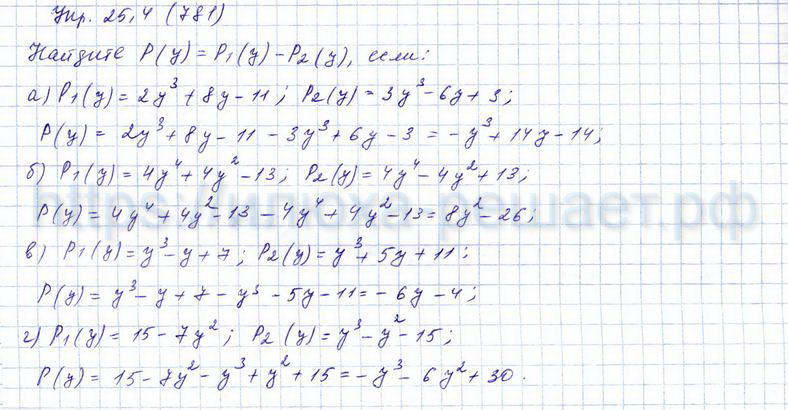 Упр. 25,4 (781)
Найдите P(y) = P₁(y) − P₂(y), если:
а) P₁(y) = 2y³ + 8y − 11; P₂(y) = 3y³ − 6y + 3;
P(y) = 2y³ + 8y − 11 − 3y³ + 6y − 3 = −y³ + 14y − 14;
б) P₁(y) = 4y⁴ + 4y² − 13; P₂(y) = 4y⁴ − 4y² + 13;
P(y) = 4y⁴ + 4y² − 13 − 4y⁴ + 4y² − 13 = 8y² − 26;
в) P₁(y) = y³ − y + 7; P₂(y) = y³ + 5y + 11;
P(y) = y³ − y + 7 − y³ − 5y − 11 = −6y − 4;
г) P₁(y) = 15 − 7y²; P₂(y) = y³ − y² − 15;
P(y) = 15 − 7y² − y³ + y² + 15 = −y³ − 6y² + 30.